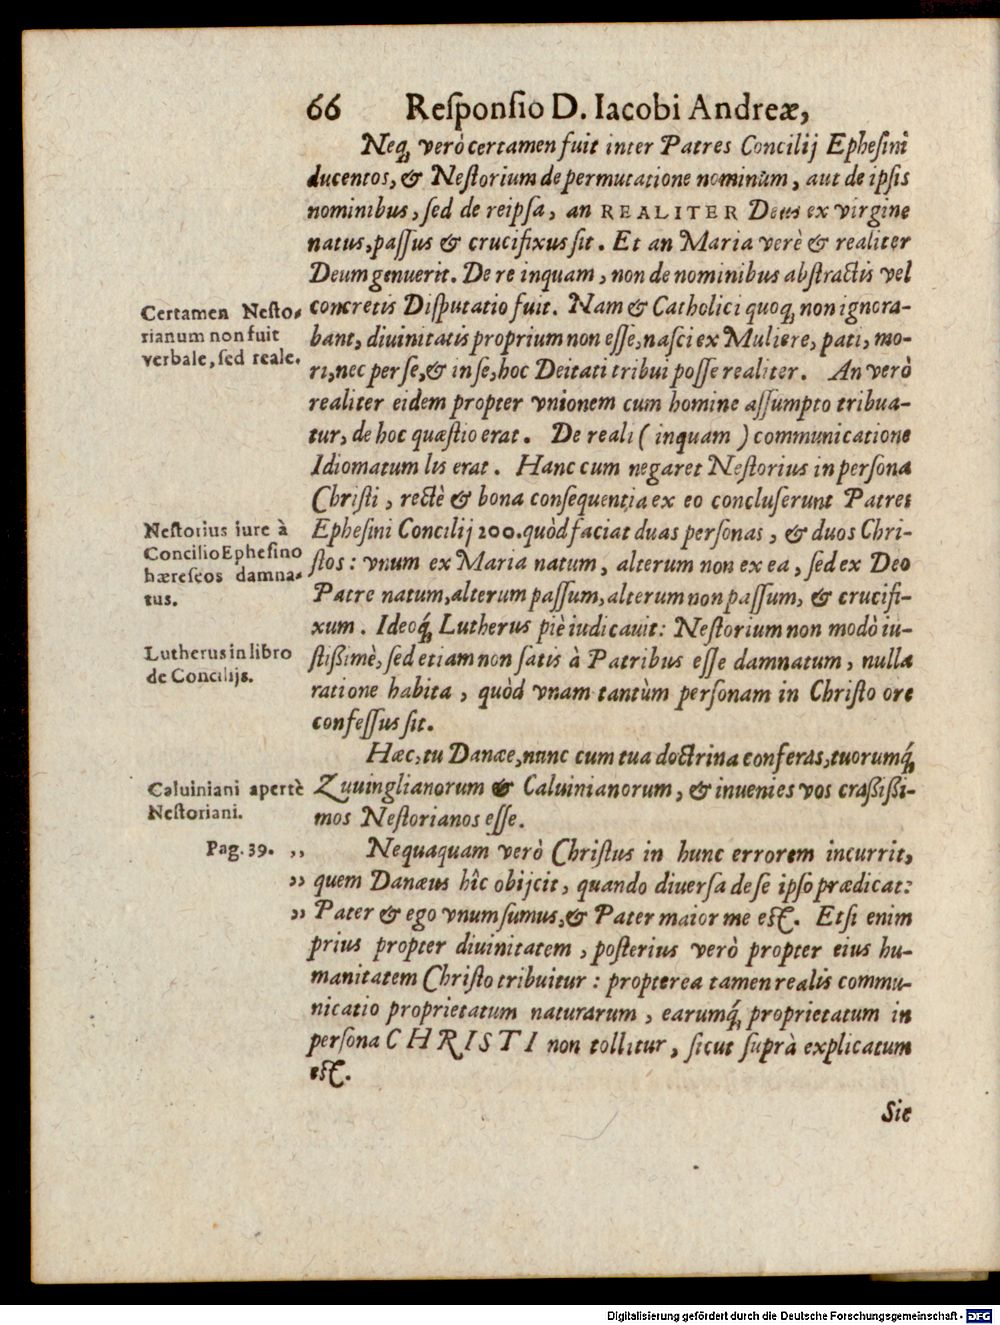 66 Reſponſio D. Iacobi Andreæ,
Neq; verò certamen fuit inter Patres Concilij Epheſini
ducentos, & Neſtorium de permutatione nominum, aut de ipſis
nominibus, ſed de reipſa, an REALITER Deus ex virgine
natus, paſſus & crucifixus ſit. Et an Maria verè & realiter
Deum genuerit. De re inquam, non de nominibus abſtractis vel
Certamen Neſto-
rianum non fuit
verbale, ſed reale.
concretis Diſputatio fuit. Nam & Catholici quoq; non ignora-
bant, diuinitatis proprium non eſſe, naſci ex Muliere, pati, mo-
ri, nec per ſe, & in ſe, hoc Deitati tribui poſſe realiter. An verò
realiter eidem propter vnionem cum homine aſſumpto tribua-
tur, de hoc quæſtio erat. De reali (inquam) communicatione
Idiomatum lis erat. Hanc cum negaret Neſtorius in perſona
Chriſti, rectè & bona conſequentia ex eo concluſerunt Patres
Neſtorius iure à
Concilio Epheſino
hæreſeos damna-
tus.
Epheſini Concilij 200. quòd faciat duas perſonas, & duos Chri-
ſtos: vnum ex Maria natum, alterum non ex ea, ſed ex Deo
Patre natum, alterum paſſum, alterum non paſſum, & crucifi-
xum. Ideoq́; Lutherus piè iudicauit: Neſtorium non modò iu-
Lutherus in libro
de Concilijs.
ſtißimè, ſed etiam non ſatis à Patribus eſſe damnatum, nulla
ratione habita, quòd vnam tantùm perſonam in Chriſto ore
confeſſus ſit.
Hæc, tu Danæe, nunc cum tua doctrina conferas, tuorumq́;
Caluiniani apertè
Neſtoriani.
Zuuinglianorum & Caluinianorum, & inuenies vos craßißi-
mos Neſtorianos eſſe.
Pag. 39. ,, Nequaquam verò Chriſtus in hunc errorem incurrit,
,, quem Danæus hîc obijcit, quando diuerſa de ſe ipſo prædicat:
,, Pater & ego vnum ſumus, & Pater maior me eſt. Etſi enim
prius propter diuinitatem, poſterius verò propter eius hu-
manitatem Chriſto tribuitur: propterea tamen realis commu-
nicatio proprietatum naturarum, earumq́; proprietatum in
perſona CHRISTI non tollitur, ſicut ſuprà explicatum
eſt.
Sic
Digitalisierung gefördert durch die Deutsche Forschungsgemeinschaft - DFG